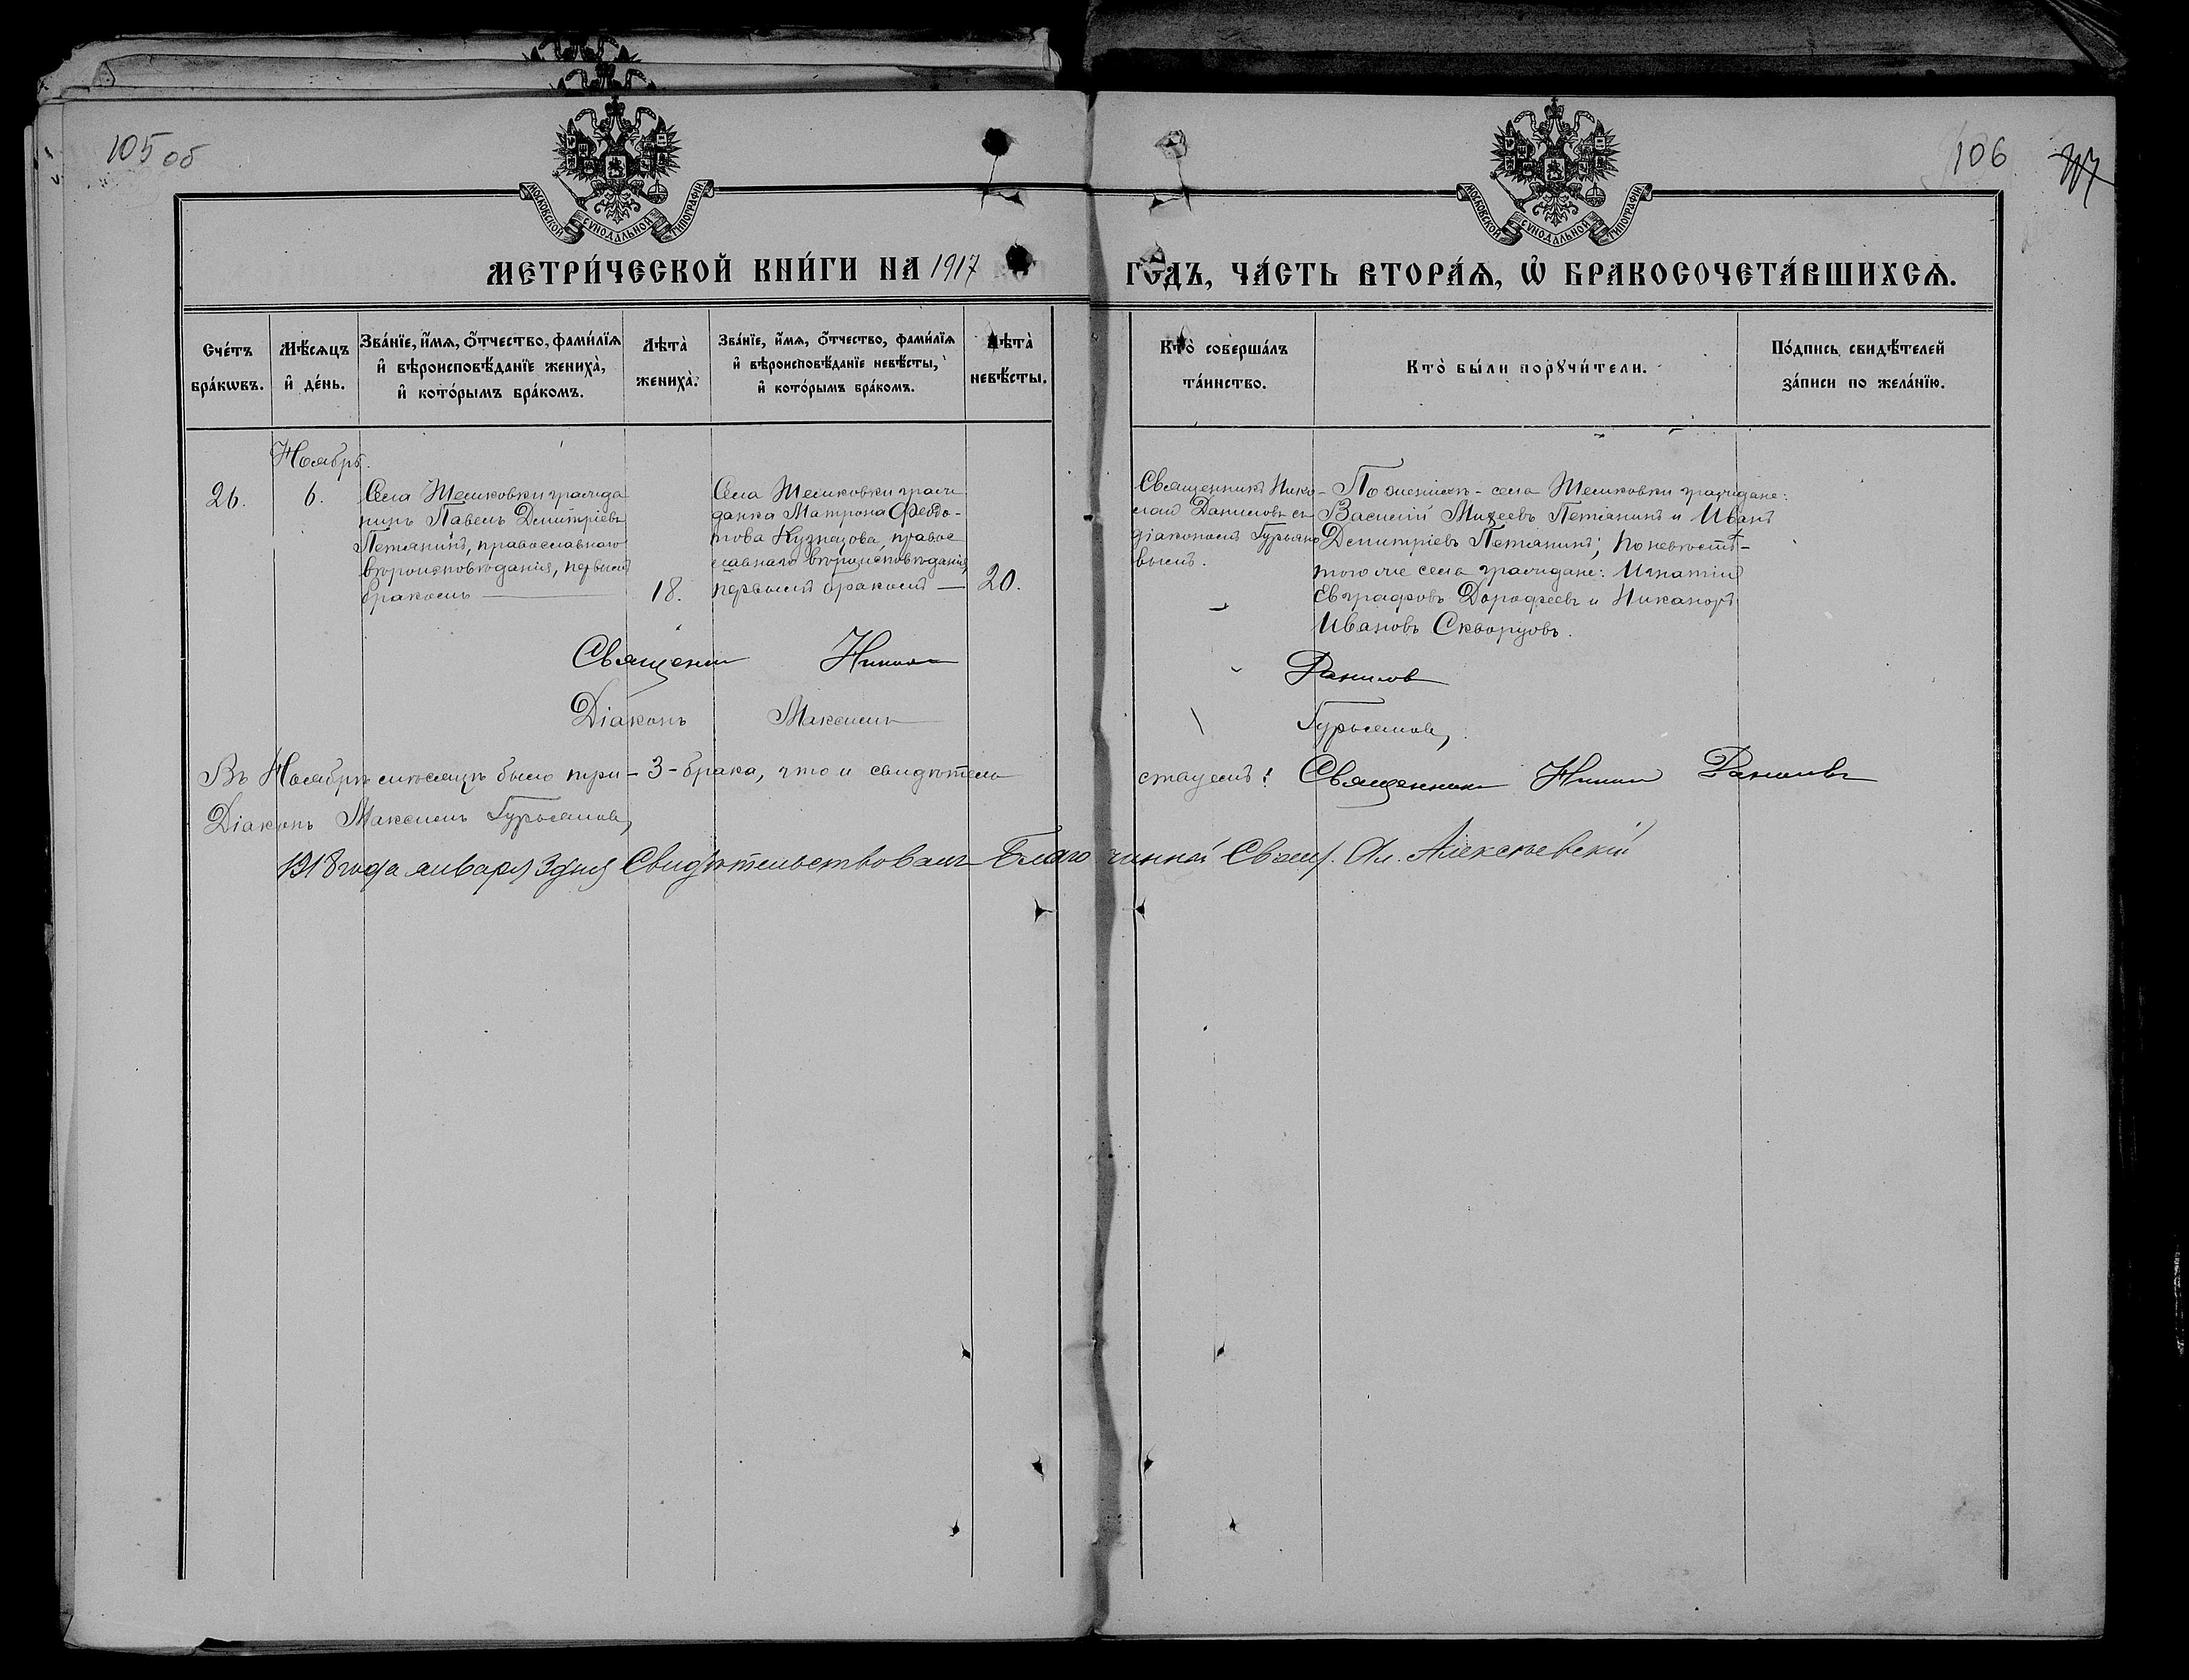 105 об
106
МОСКОВСКОЙ СѴНОДАЛЬНОЙ ТИПОГРАФІИ
МОСКОВСКОЙ СѴНОДАЛЬНОЙ ТИПОГРАФІИ
МЕТРИ́ЧЕСКОЙ КНИ́ГИ НА 1917
ГОДЪ, ЧА́СТЬ ВТОРА́Ѧ, Ѿ БРАКОСОЧЕТА́ВШИХСѦ.
Сче́тъ
бра́кѡвъ.
Мѣ́сѧцъ
и҆ де́нь.
Зва́нїе, и҆́мѧ, ѻ҆́тчество, фами́лїѧ
и҆ вѣроисповѣ́данїе жениха̀,
и҆ кото́рымъ бра́комъ.
Лѣта̀
жениха̀.
Зва́нїе, и҆́мѧ, ѻ҆́тчество, фами́лїѧ
и҆ вѣроисповѣ́данїе невѣ́сты,
и҆ кото́рымъ бра́комъ.
Лѣта̀
невѣ́сты.
Кто̀ соверша́лъ
та́инство.
Кто̀ бы́ли порꙋчи́тели.
По́дпись свидѣ́телей
за́писи по жела́нїю.
Ноябрь.
26.
6.
Села Шемковки гражда
нинъ Павелъ Димитріевъ
Петянинъ, православнаго
вѣроисповѣданія, первымъ
бракомъ
18.
Села Шемковки граж
данка Матрона Ѳеодо-
това Кузнецова, правос
лавнаго вѣроисповѣданія,
первымъ бракомъ
20.
Священникъ Нико-
лай Даниловъ съ
діакономъ Гурьяно
вымъ.
По женихѣ - села Шемковки граждане:
Василій Михеевъ Петянинъ и Иванъ
Димитріевъ Петянинъ; по невѣстѣ -
того же села граждане: Игнатій
Евграфовъ Дорофеевъ и Никаноръ
Ивановъ Скворцовъ.
Священник Николай Данилов
Діаконъ Максимъ Гурьянов,
Въ Ноябрѣ мѣсяцѣ было три - 3 - брака, что и свидѣтель
ствуемъ: Священник Николай Даниловъ
Діаконъ Максимъ Гурьянов,
1918 года января 3 дня Свидѣтельствовалъ Благочинный Свящ. Ал. Алексѣевскій